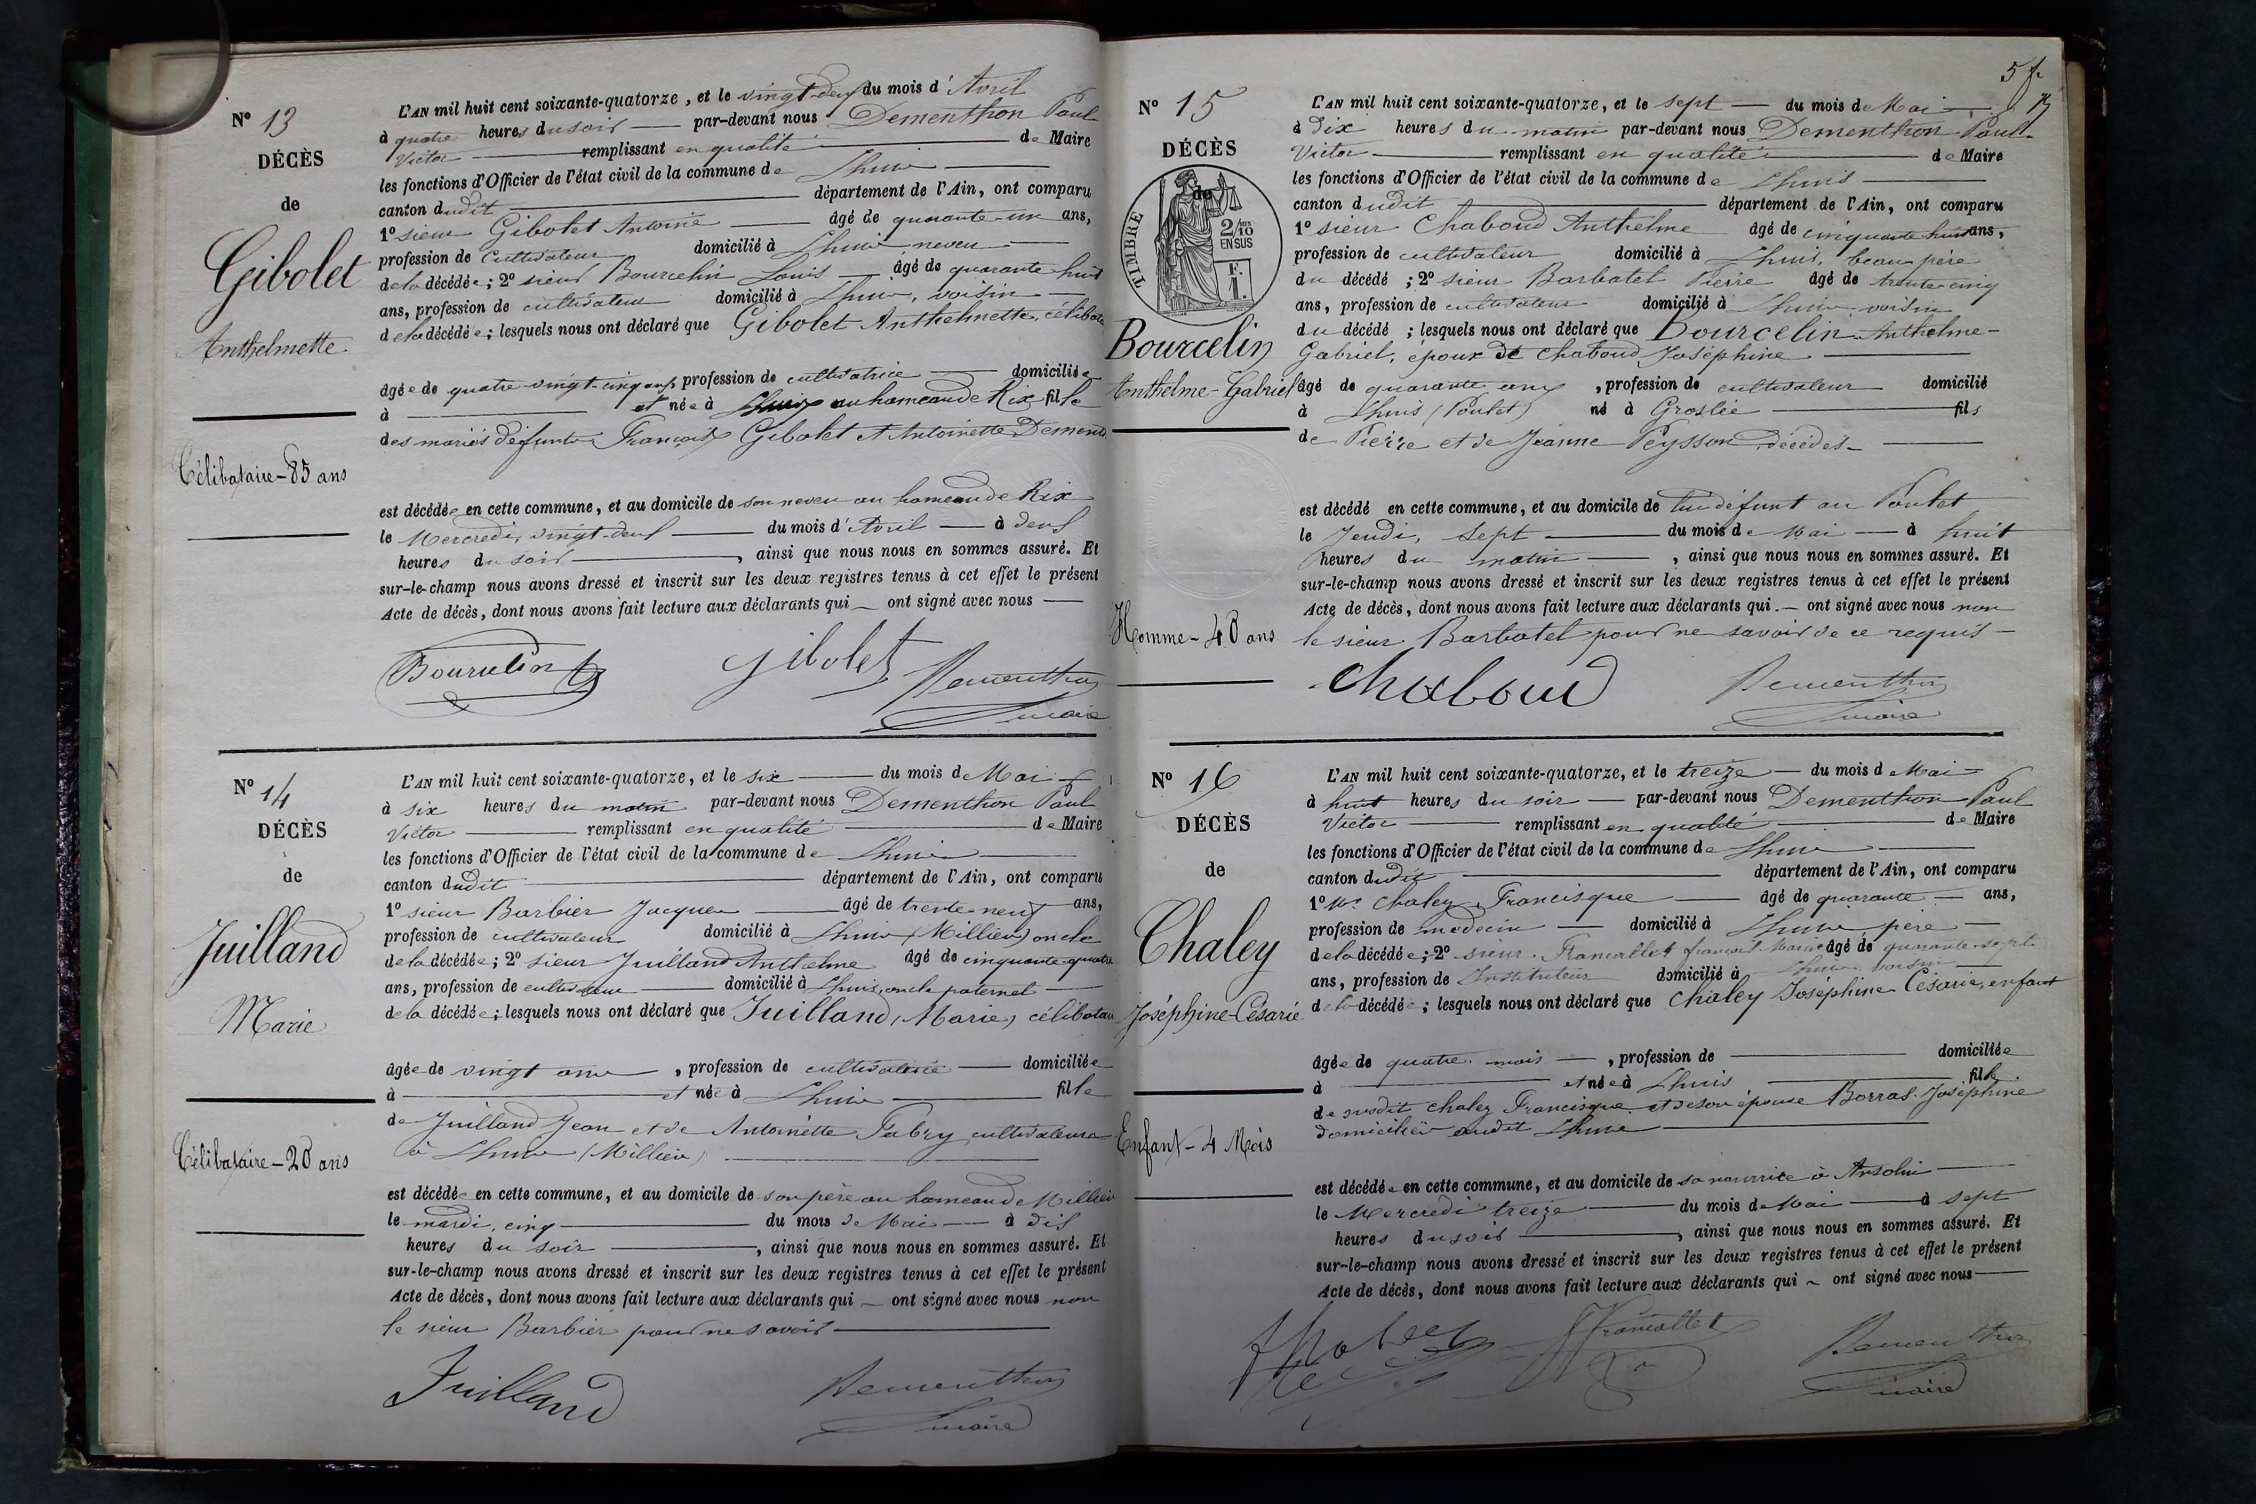 N° 13
DÉCÈS
de
Gibolet
Anthelmette
Célibataire - 85 ans
L'AN mil huit cent soixante-quatorze, et le vingt-deux du mois d'Avril
à quatre heures du soir — par-devant nous Dementhon Paul
Victor — remplissant en qualité — de Maire
les fonctions d'Officier de l'état civil de la commune de Lhuis —
canton dudit — département de l'Ain, ont comparu
1° sieur Gibolet Antoine — âgé de quarante-un ans,
profession de cultivateur domicilié à Lhuis neveu —
de la décédée ; 2° sieur Bourcelin Louis — âgé de quarante-huit
ans, profession de cultivateur domicilié à Lhuis, voisin —
de la décédée ; lesquels nous ont déclaré que Gibolet Anthelmette, célibataire
âgée de quatre-vingt-cinq ans, profession de cultivatrice — domiciliée
à — et née à Lhuis au hameau de Rix fille
des mariés défunts François Gibolet et Antoinette
est décédée en cette commune, et au domicile de son neveu au hameau de Rix
le Mercredi, vingt-deux — du mois d'Avril — à deux
heures du soir —, ainsi que nous nous en sommes assuré. Et
sur-le-champ nous avons dressé et inscrit sur les deux registres tenus à cet effet le présent
Acte de décès, dont nous avons fait lecture aux déclarants qui — ont signé avec nous —
Bourcelin Gibolet Dementhon
maire
N° 14
DÉCÈS
de
Juilland
Marie
Célibataire - 20 ans
L'AN mil huit cent soixante-quatorze, et le six — du mois de Mai —
à six heures du matin par-devant nous Dementhon Paul
Victor — remplissant en qualité — de Maire
les fonctions d'Officier de l'état civil de la commune de Lhuis —
canton dudit — département de l'Ain, ont comparu
1° sieur Barbier Jacques — âgé de trente-neuf ans,
profession de cultivateur domicilié à Lhuis (Millieu) oncle
de la décédée ; 2° sieur Juilland Anthelme âgé de cinquante-quatre
ans, profession de cultivateur — domicilié à Lhuis, oncle paternel —
de la décédée ; lesquels nous ont déclaré que Juilland, Marie, célibataire
âgée de vingt ans —, profession de cultivatrice — domiciliée
à — et née à Lhuis — fille
de Juilland Jean et de Antoinette Fabry cultivateurs
à Lhuis (Millieu) —
est décédée en cette commune, et au domicile de son père au hameau de Millieu
le mardi, cinq — du mois de Mai — à dix
heures du soir —, ainsi que nous nous en sommes assuré. Et
sur-le-champ nous avons dressé et inscrit sur les deux registres tenus à cet effet le présent
Acte de décès, dont nous avons fait lecture aux déclarants qui — ont signé avec nous non
le sieur Barbier pour ne savoir —
Juilland Dementhon
maire
5 f.
N° 15
DÉCÈS
de
TIMBRE
2/10
EN SUS
F.
1.
Bourcelin
Anthelme-Gabriel
Homme - 40 ans
L'AN mil huit cent soixante-quatorze, et le sept — du mois de Mai —
à dix heures du matin par-devant nous Dementhon Paul
Victor — remplissant en qualité — de Maire
les fonctions d'Officier de l'état civil de la commune de Lhuis —
canton dudit — département de l'Ain, ont comparu
1° sieur Chaboud Anthelme âgé de cinquante-huit ans,
profession de cultivateur domicilié à Lhuis, beau père
du décédé ; 2° sieur Barbatel Pierre âgé de trente-cinq
ans, profession de cultivateur domicilié à Lhuis voisin
du décédé ; lesquels nous ont déclaré que Bourcelin Anthelme-
Gabriel, époux de Chaboud Joséphine —
âgé de quarante ans, profession de cultivateur domicilié
à Lhuis (Poulet) né à Groslée — fils
de Pierre et de Jeanne Peysson, décédés —
est décédé en cette commune, et au domicile de lui défunt au Poulet
le Jeudi, sept — du mois de Mai — à huit
heures du matin —, ainsi que nous nous en sommes assuré. Et
sur-le-champ nous avons dressé et inscrit sur les deux registres tenus à cet effet le présent
Acte de décès, dont nous avons fait lecture aux déclarants qui — ont signé avec nous non
le sieur Barbatel pour ne savoir de ce requis —
Chaboud Dementhon
maire
N° 16
DÉCÈS
de
Chaley
Joséphine-Césarie
Enfant - 4 Mois
L'AN mil huit cent soixante-quatorze, et le treize — du mois de Mai —
à huit heures du soir — par-devant nous Dementhon Paul
Victor — remplissant en qualité — de Maire
les fonctions d'Officier de l'état civil de la commune de Lhuis —
canton dudit — département de l'Ain, ont comparu
1° Mr. Chaley Francisque — âgé de quarante — ans,
profession de médecin — domicilié à Lhuis père —
de la décédée ; 2° sieur Francallet François Marie âgé de quarante-sept
ans, profession de Instituteur domicilié à Lhuis voisin
de la décédée ; lesquels nous ont déclaré que Chaley Joséphine Césarie, enfant
âgée de quatre mois —, profession de — domiciliée
à — et née à Lhuis — fille
de susdit Chaley Francisque et de son épouse Borras Joséphine
domiciliés audit Lhuis —
est décédée en cette commune, et au domicile de sa nourrice à Ansolin —
le Mercredi treize — du mois de Mai — à sept
heures du soir —, ainsi que nous nous en sommes assuré. Et
sur-le-champ nous avons dressé et inscrit sur les deux registres tenus à cet effet le présent
Acte de décès, dont nous avons fait lecture aux déclarants qui ~ ont signé avec nous —
Francallet Dementhon
maire